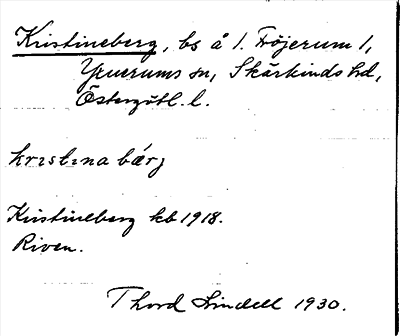 Kristineberg, bs å 1. Höjerum 1,
Yxnerums sn, Skärkinds hd,
Östergötl. l.
krɪstɪna bærj
Kristineberg kb 1918.
Riven.
Thord Lindell 1930.